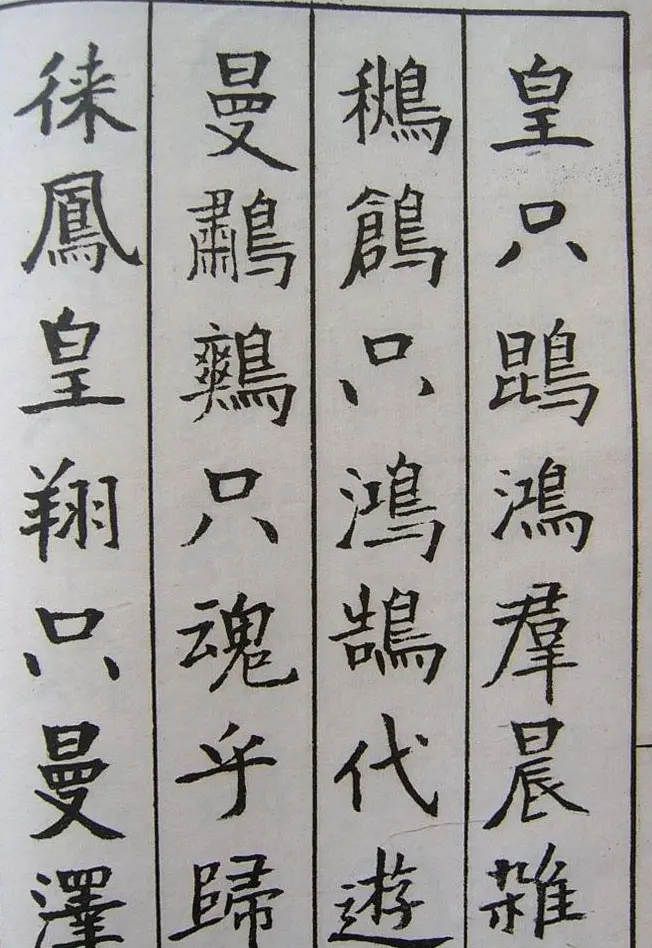 皇只鹍鴻羣晨雜
鶖鶬只鴻鵠代遊
曼鷫鷞只魂乎歸
徠鳳皇翔只曼澤